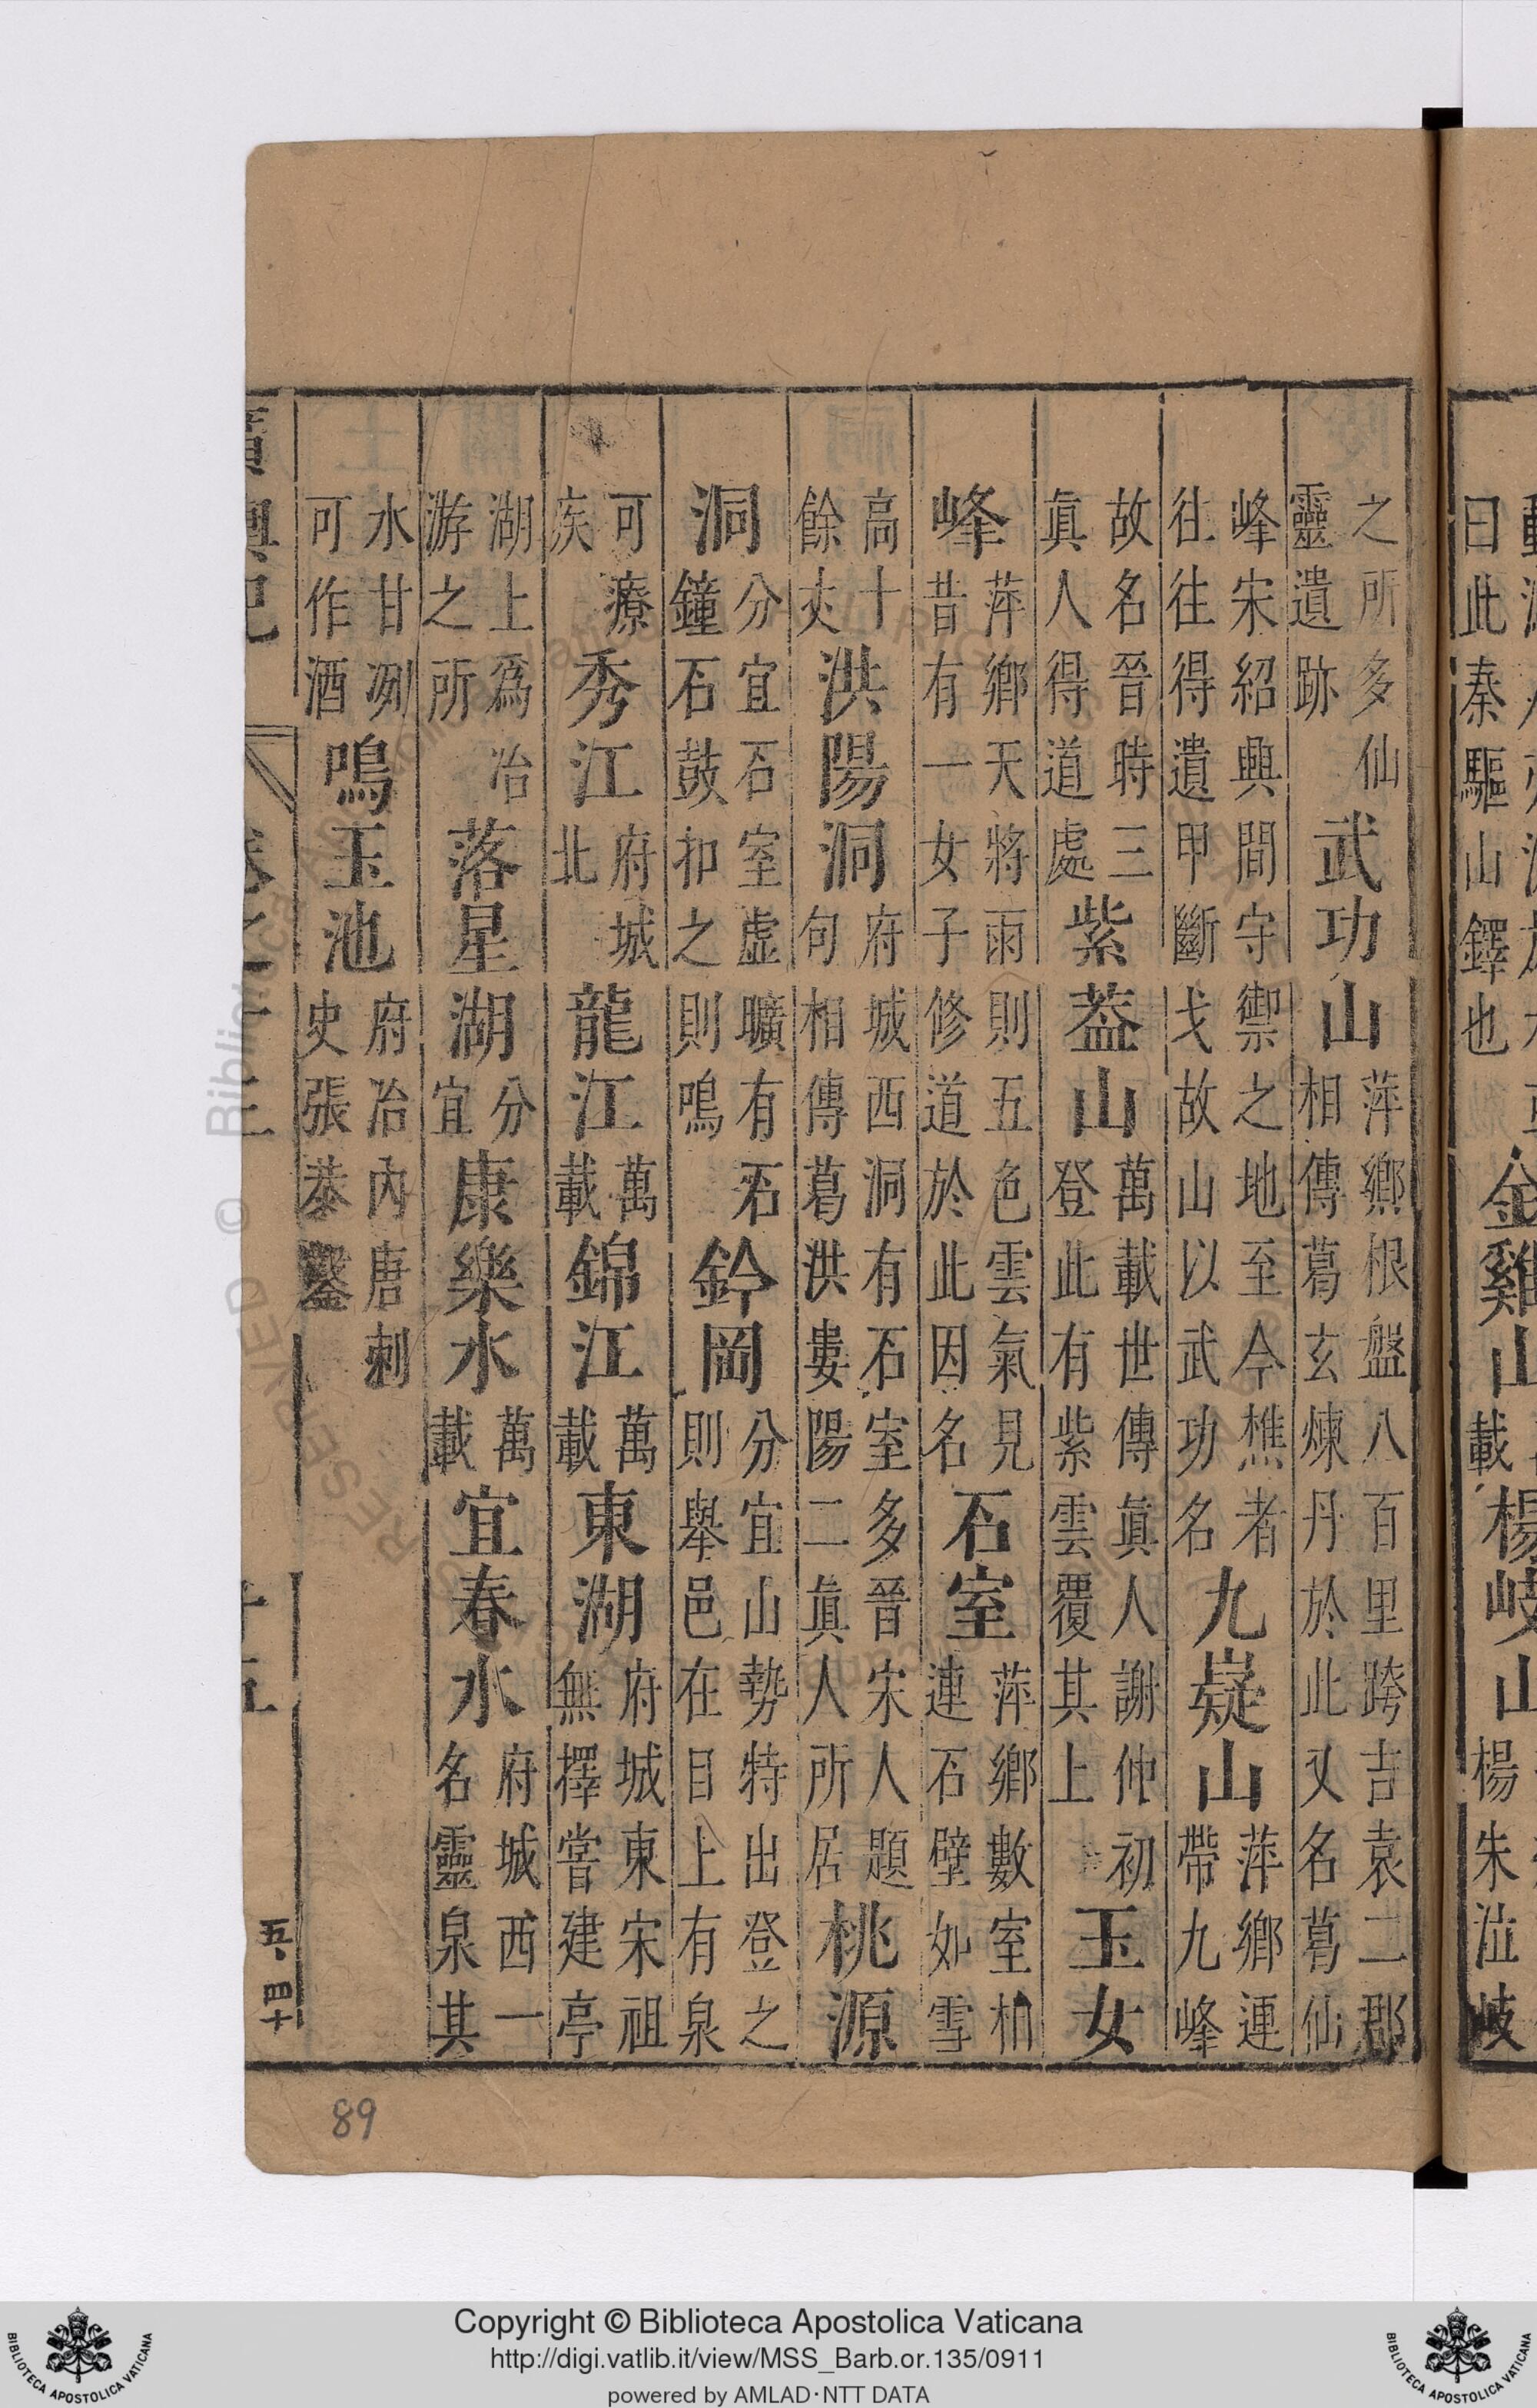 曰此秦驅山鐸也
金雞山
載
楊岐山
楊朱泣岐
之所多仙
靈遺跡
武功山
萍鄉根盤八百里跨吉袁二郡
相傳葛玄煉丹於此又名葛仙
峰宋紹興間守禦之地至今樵者
往往得遺甲斷戈故山以武功名
九嶷山
萍鄉連
帶九峰
故名晉時三
眞人得道處
紫蓋山
萬載世傳眞人謝仲初
登此有紫雲覆其上
玉女
峰
萍鄉天將雨則五色雲氣見
昔有一女子修道於此因名
石室
萍鄉數室相
連石壁如雪
高十
餘丈
洪陽洞
府城西洞有石室多晉宋人題
句相傳葛洪婁陽二眞人所居
桃源
洞
分宜石室虛曠有石
鐘石鼓扣之則鳴
鈐岡
分宜山勢特出登之
則舉邑在目上有泉
可療
疾
秀江
府城
北
龍江
萬
載
錦江
萬
載
東湖
府城東宋祖
無擇嘗建亭
湖上爲冶
游之所
落星湖
分
宜
康樂水
萬
載
宜春水
府城西一
名靈泉其
水甘冽
可作酒
鳴玉池
府治內唐刺
史張恭鑿
五、四十
89
Copyright © Biblioteca Apostolica Vaticana
http://digi.vatlib.it/view/MSS_Barb.or.135/0911
powered by AMLAD·NTT DATA